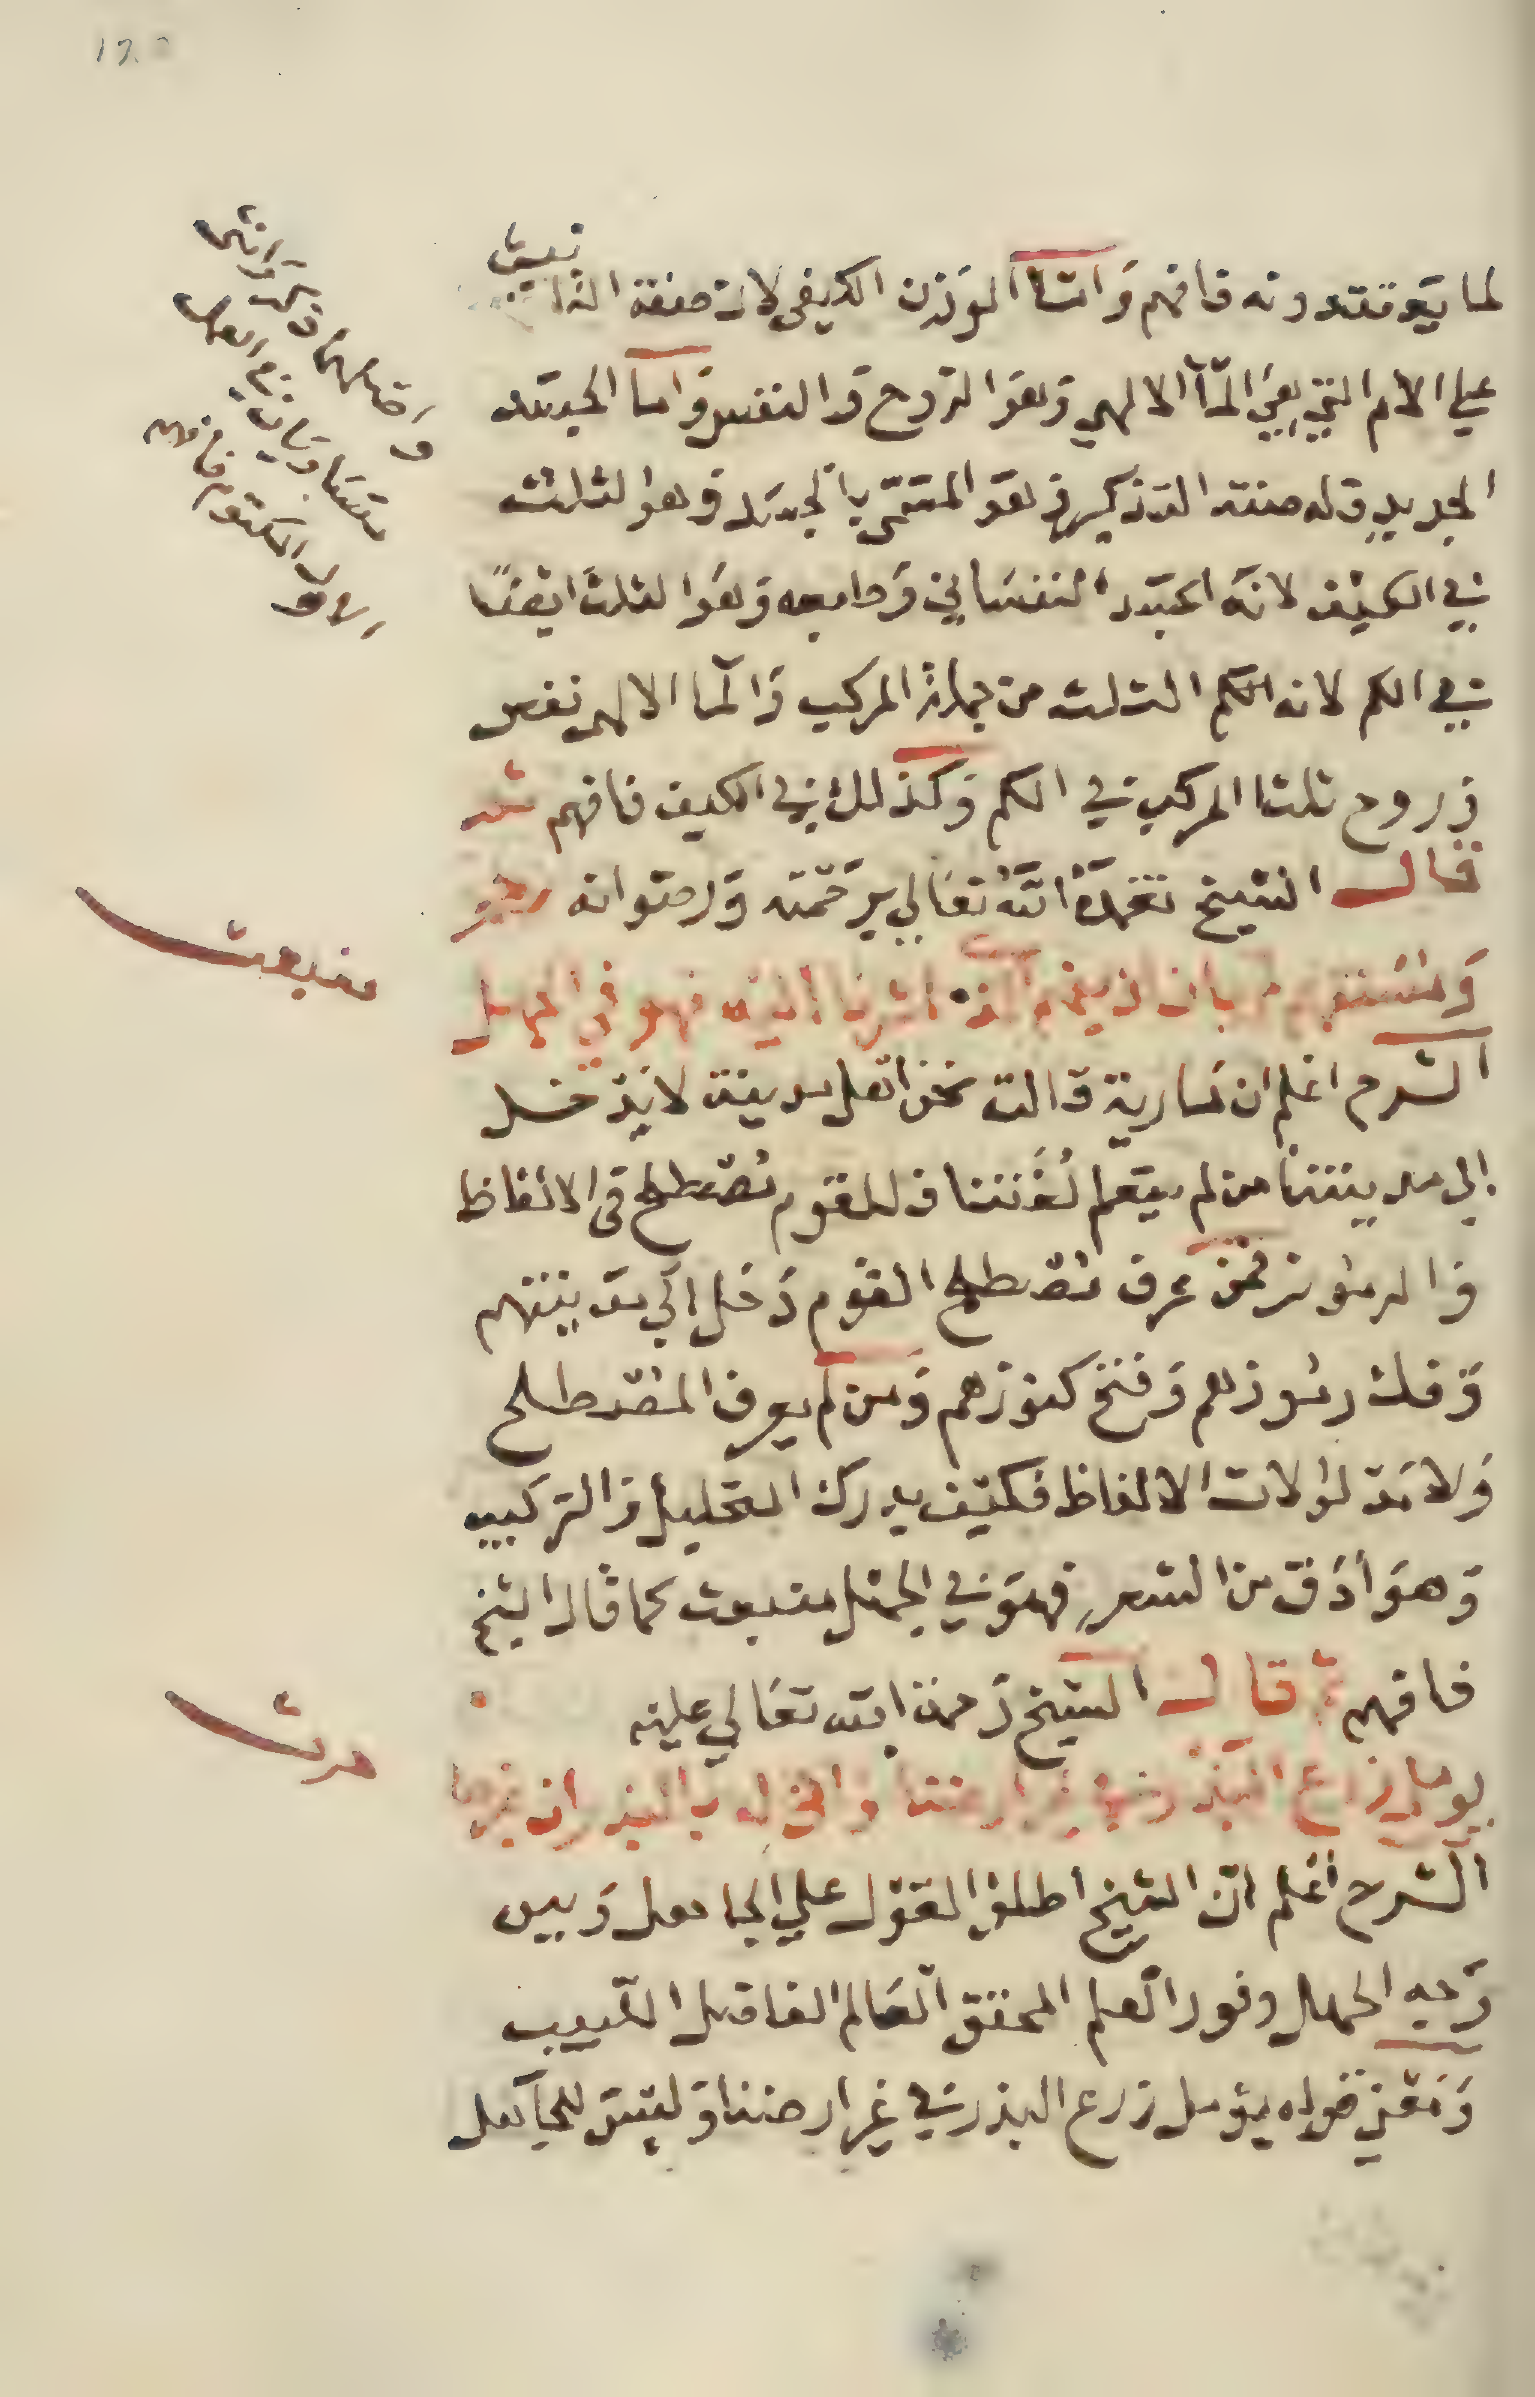 لما يعتقدونه فافهم وَامّا الوزن الكيفى لان صفة التا نيث
علي الام التي هي المآ الالهي وَهوَ الروح وَالنفس وَاما الجسَد
الجديد وله صفة التذكير وهوَ المسَمّى بالجسَد وهوا لثلث
في الكيف لانه الجسَد النفسَاني وَجامعه وَهوَا لثلث ايضًا
في الكم لانه الكم الثلث من جملة المركب وَالمآ الالهى نفس
وروح ثلثا المركب في الكم وَكذلك في الكيف فافهم
قال الشيخ تغمدَهُ اللهُ تعَالي برَحْمته وَرضوانه
بان فهو في الجهل
الشرح اعلم ان مَارية قالت نحن اهل مدينة لا يدخل
الي مدينتنا من لم يتعلم لُغَتنا فللقوم مُصْطلح في الالفاظ
وَالرموز فمن عرف مُصْطلح القوم دَخل الي مدينتهم
وَفك رمُوزهم وَفتح كنوزهم وَمن لم يعرف المصْطلح
وَلا مَدلولات الالفاظ فكيف يدرك التحليل وَالتركيب
وَهوَ أدَق من الشعرِ فهوَ في الجهل منبعث كما قال الشيخ
فافهم قال الشيخ رَحمة الله تعَالي عليه
يومل زرع البذر في غير ارضنا
الشرح أعْلم انّ الشيخ اطلق القوْل علي الجاهل وَبين
وَجه الجهل ونور العلم المحقق العَالم الفاضل اللبيب
وَمَعْني قوله يؤمل زرع البذر في غير ارضنا وَليسَ للجاهل
منبعث
حرث
واصلهما ذكر وَانثى
متسَاويان في العمل
الاول المكتوم فافهم